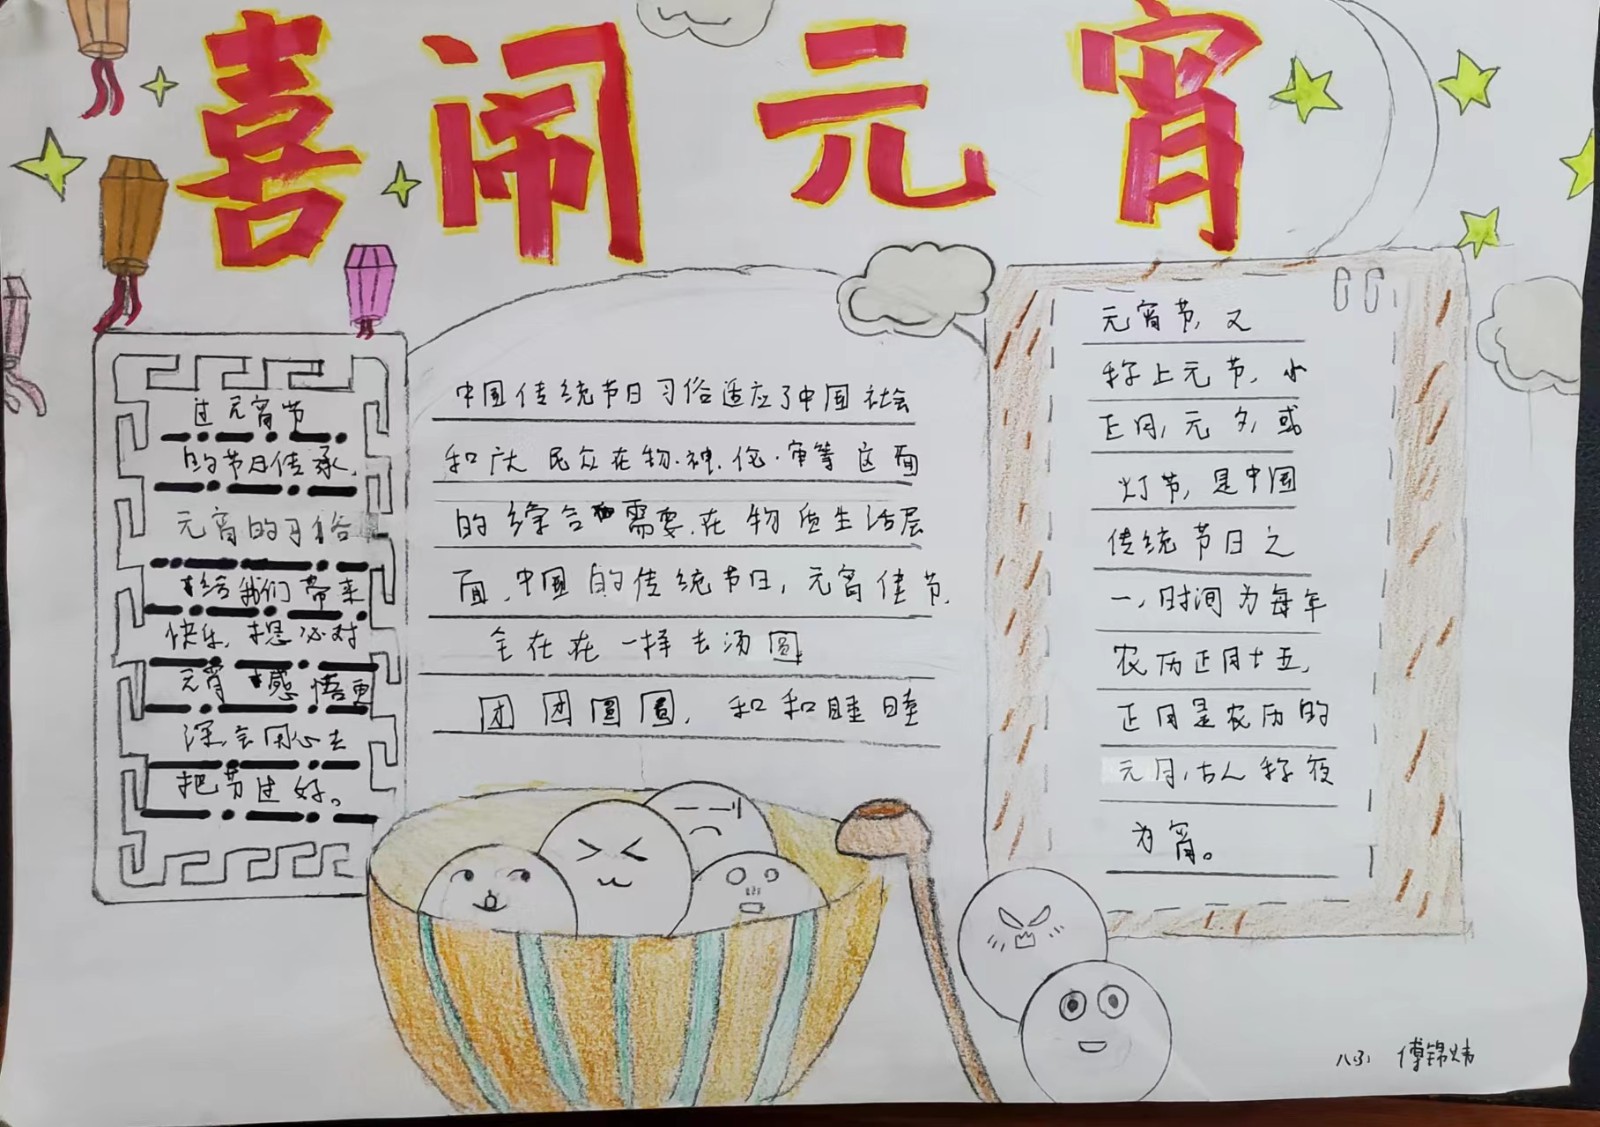 喜闹元宵
过元宵节
的节日传承,
元宵的习俗
给我们带来
快乐,想必对
元宵 感悟更
深,会用心去
把节过好。
中国传统节日习俗适应了中国社会
和广大民众在物.神.伦.审等这面
的综合需要.在物质生活层
面.中国的传统节日,元宵佳节,
全在在一样去汤圆
团团圆圆,和和睦睦
元宵节,又
称上元节,小
正月,元夕,或
灯节,是中国
传统节日之
一,时间为每年
农历正月十五,
正月是农历的
元月,古人称夜
为宵。
八(3) 傅锦炜